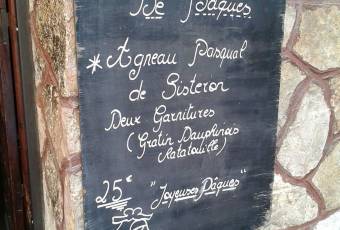 De Pâques
* Agneau Pasqual
de Sisteron
Deux Garnitures
(Gratin Dauphinois
Ratatouille)
25€ "Joyeuses Pâques"